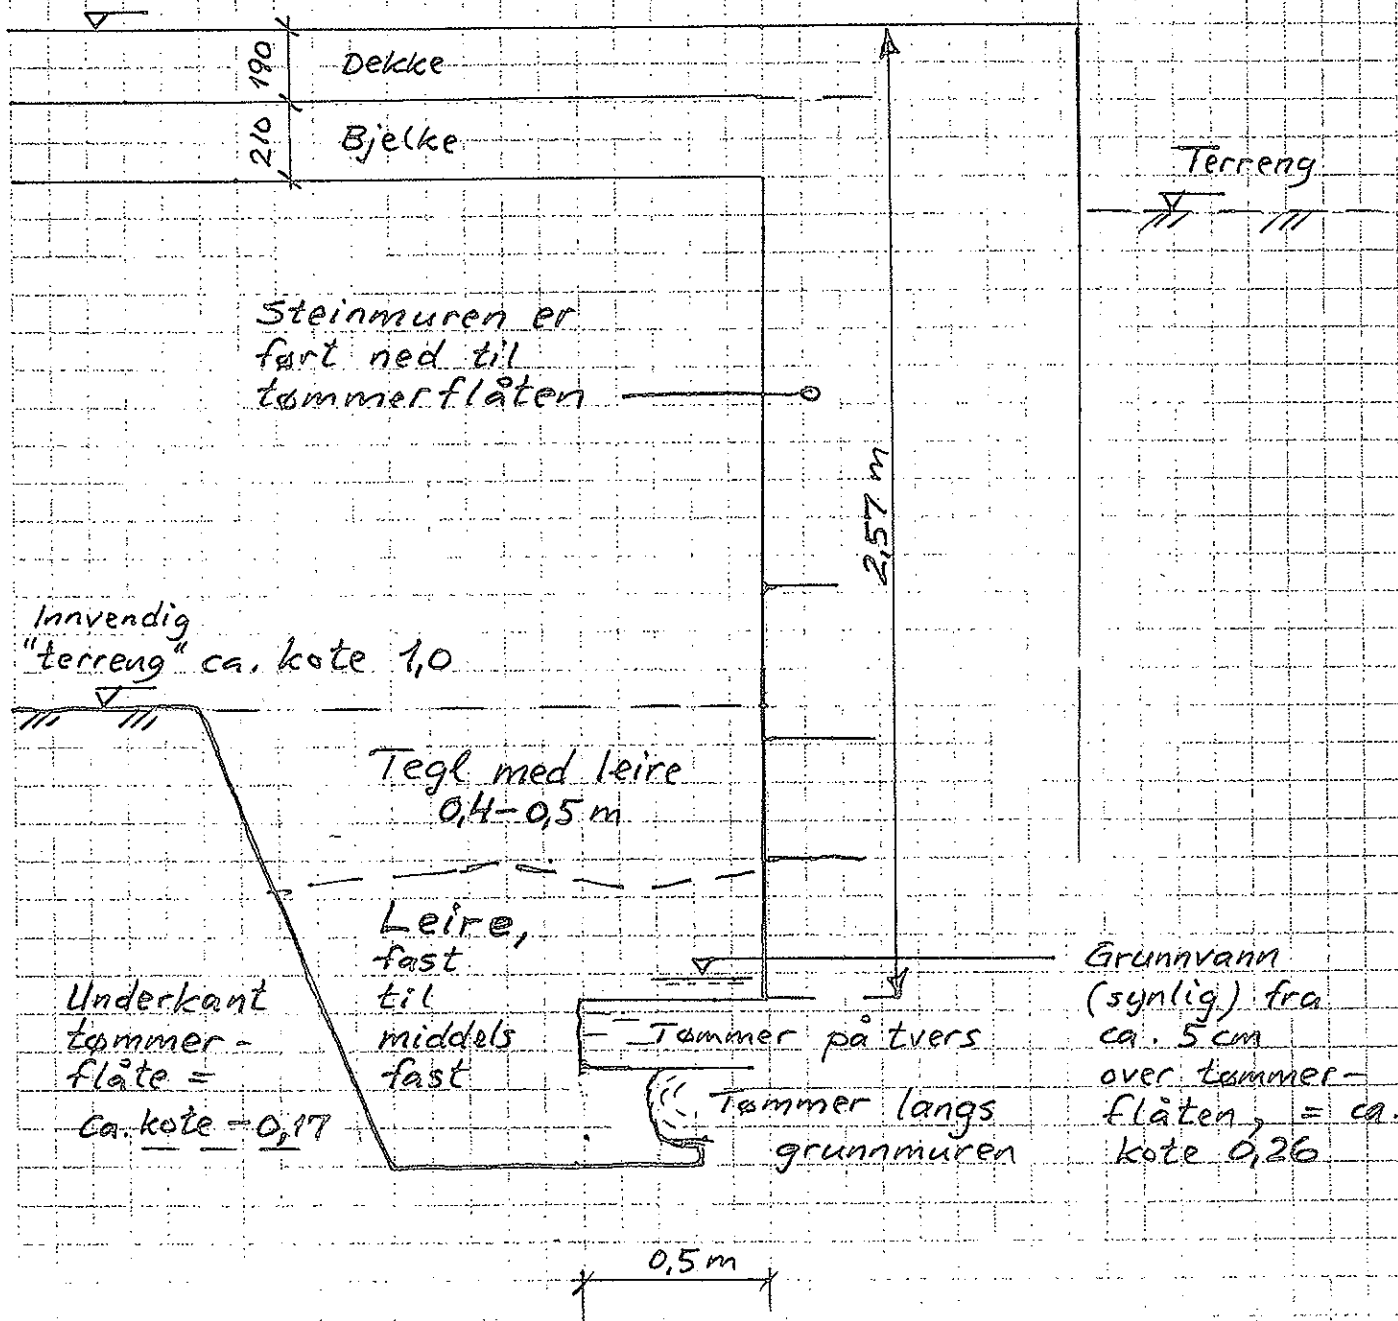 190
Dekke
210
Bjelke
Terreng
Steinmuren er
ført ned til
tømmerflåten
2,57 m
Innvendig
"terreng" ca. kote 1,0
Tegl med leire
0,4-0,5 m
Leire,
fast
til
middels
fast
Underkant
tømmer-
flåte =
ca. kote -0,17
Tømmer på tvers
Tømmer langs
grunnmuren
Grunnvann
(synlig) fra
ca. 5 cm
over tømmer-
flåten, = ca.
kote 0,26
0,5 m